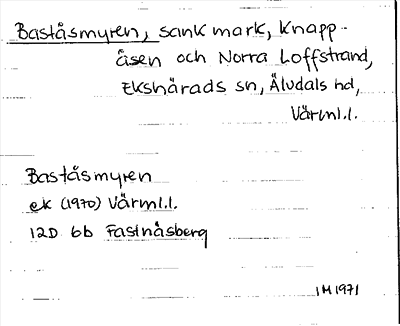 Baståsmyren, sank mark, Knapp-
åsen och Norra Loffstrand,
Ekshärads sn, Älvdals hd,
Värml.l.
Baståsmyren
ek (1970) Värml.l.
12D 6b Fastnåsberg
IM 1971